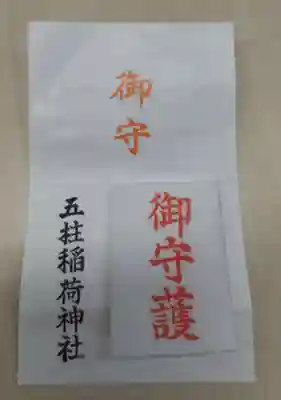 御守
御守護
五柱稲荷神社